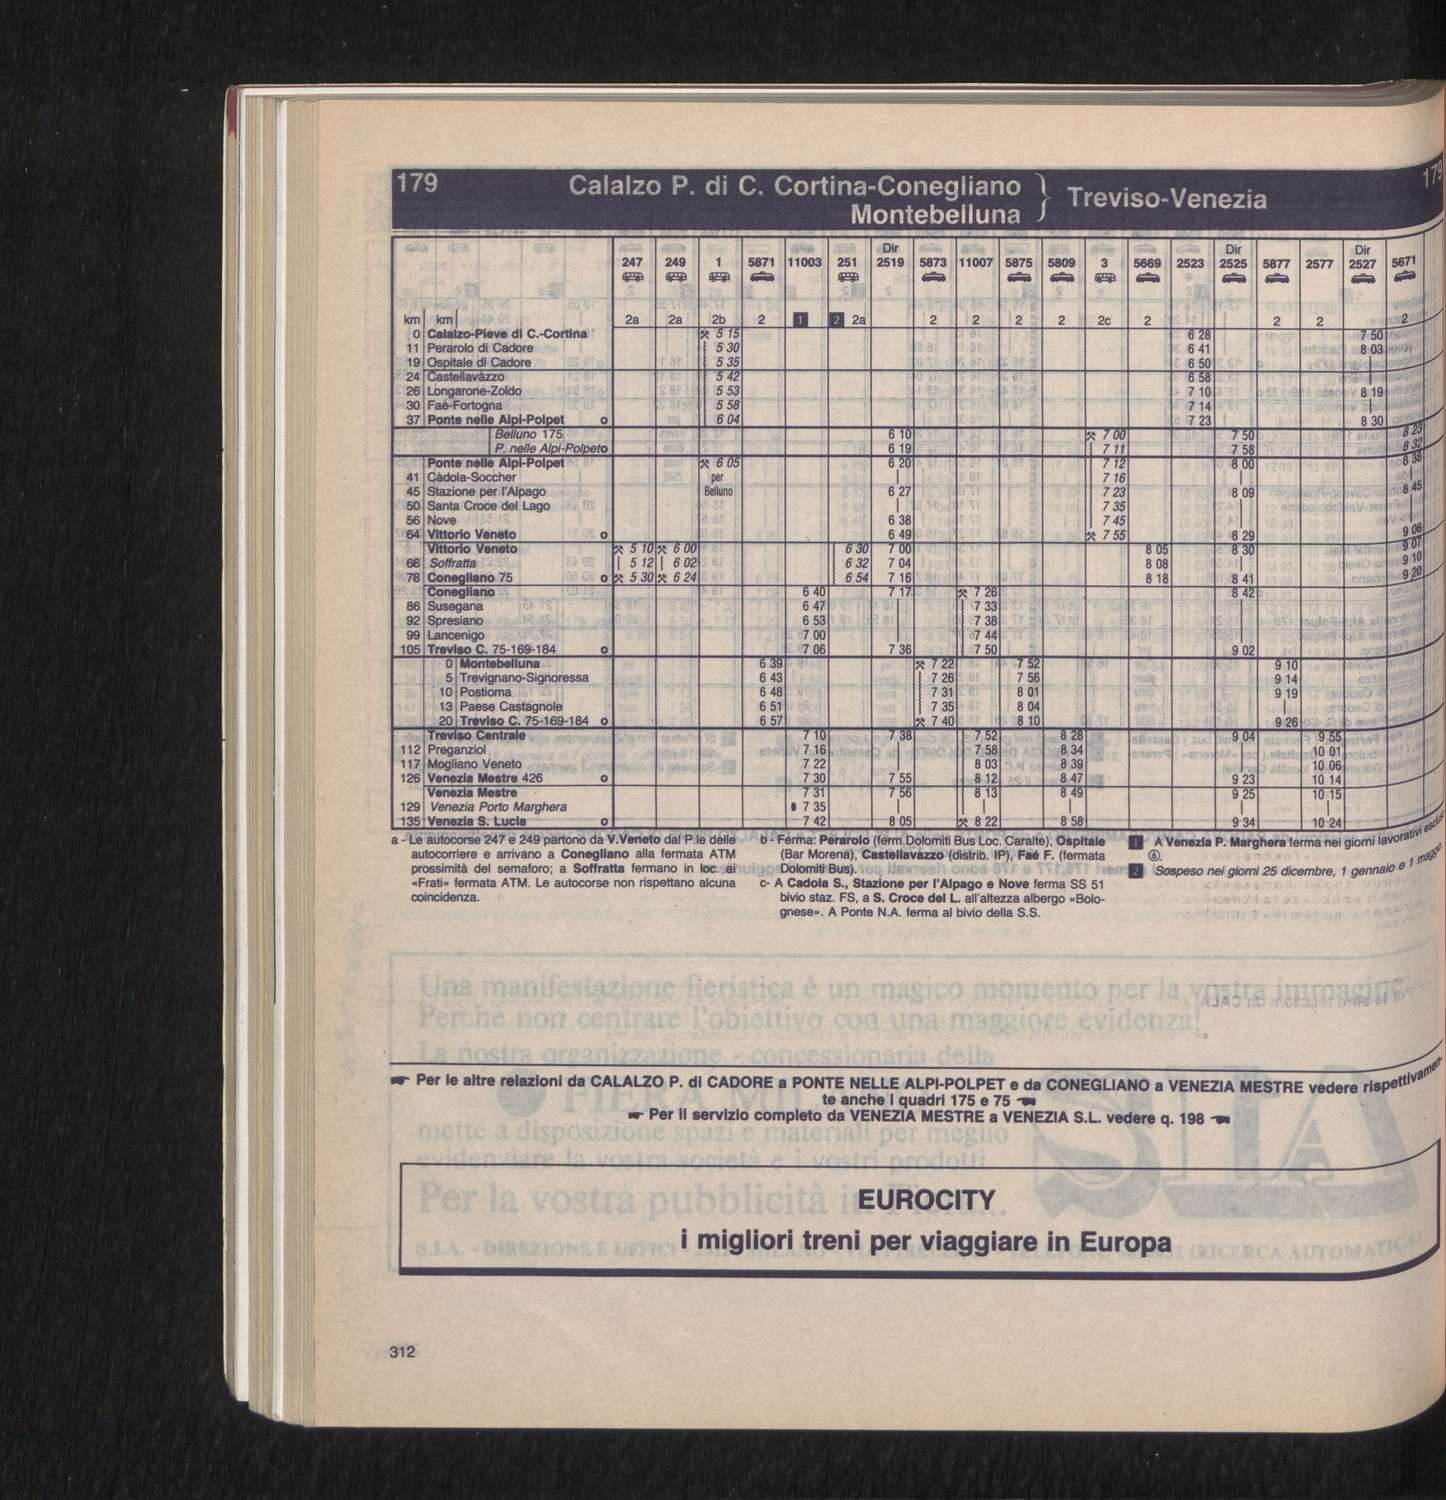 179 Calalzo P. di C. Cortina-Conegliano Montebelluna } Treviso-Venezia 179
247 249 1 5871 11003 251 Dir 2519 5873 11007 5875 5809 3 5669 2523 Dir 2525 5877 2577 Dir 2527 5671
km km 2a 2a 2b 2 1 2 2a 2 2 2 2 2c 2 2 2 2
0 Calalzo-Pieve di C.-Cortina ⚒ 5 15 6 28 7 50
11 Perarolo di Cadore 5 30 6 41 8 03
19 Ospitale di Cadore 5 35 6 50 |
24 Castellavàzzo 5 42 6 58 |
26 Longarone-Zoldo 5 53 7 10 8 19
30 Faé-Fortogna 5 58 7 14 |
37 Ponte nelle Alpi-Polpet o 6 04 7 23 8 30
Belluno 175 6 10 ⚒ 7 00 7 50 8 23
P. nelle Alpi-Polpet o 6 19 7 11 7 58 8 32
Ponte nelle Alpi-Polpet ⚒ 6 05 6 20 7 12 8 00 8 38
41 Càdola-Soccher per | 7 16 | |
45 Stazione per l'Alpago Belluno 6 27 7 23 8 09 8 45
50 Santa Croce del Lago | 7 35 | |
56 Nove 6 38 7 45 | |
64 Vittorio Veneto o 6 49 ⚒ 7 55 8 29 9 06
Vittorio Veneto ⚒ 5 10 ⚒ 6 00 6 30 7 00 8 05 8 30 9 07
66 Soffratta 5 12 6 02 6 32 7 04 8 08 | 9 10
78 Conegliano 75 o ⚒ 5 30 ⚒ 6 24 6 54 7 16 8 18 8 41 9 20
Conegliano 6 40 7 17 ⚒ 7 26 8 42
86 Susegana 6 47 | 7 33 |
92 Spresiano 6 53 | 7 38 |
99 Lancenigo 7 00 | 7 44 |
105 Treviso C. 75-169-184 o 7 06 7 36 7 50 9 02
0 Montebelluna 6 39 ⚒ 7 22 7 52 9 10
5 Trevignano-Signoressa 6 43 7 26 7 56 9 14
10 Postioma 6 48 7 31 8 01 9 19
13 Paese Castagnole 6 51 7 35 8 04 |
20 Treviso C. 75-169-184 o 6 57 ⚒ 7 40 8 10 9 26
Treviso Centrale 7 10 7 38 7 52 8 28 9 04 9 55
112 Preganziol 7 16 | 7 58 8 34 | 10 01
117 Mogliano Veneto 7 22 | 8 03 8 39 | 10 06
126 Venezia Mestre 426 o 7 30 7 55 8 12 8 47 9 23 10 14
Venezia Mestre 7 31 7 56 8 13 8 49 9 25 10 15
129 Venezia Porto Marghera 7 35 | | | |
135 Venezia S. Lucia o 7 42 8 05 ⚒ 8 22 8 58 9 34 10 24
a - Le autocorse 247 e 249 partono da V.Veneto dal P.le delle
autocorriere e arrivano a Conegliano alla fermata ATM
prossimità del semaforo; a Soffratta fermano in loc. ai
«Frati» fermata ATM. Le autocorse non rispettano alcuna
coincidenza.
b - Ferma: Perarolo (ferm.Dolomiti Bus Loc. Caralte), Ospitale
(Bar Morena), Castellavazzo (distrib. IP), Faé F. (fermata
Dolomiti Bus).
c- A Cadola S., Stazione per l'Alpago e Nove ferma SS 51
bivio staz. FS, a S. Croce del L. all'altezza albergo «Bolo-
gnese». A Ponte N.A. ferma al bivio della S.S.
1 A Venezia P. Marghera ferma nei giorni lavorativi esclusi
⑥.
2 Sospeso nei giorni 25 dicembre, 1 gennaio e 1 maggio
Per le altre relazioni da CALALZO P. di CADORE a PONTE NELLE ALPI-POLPET e da CONEGLIANO a VENEZIA MESTRE vedere rispettivamen-
te anche i quadri 175 e 75
Per il servizio completo da VENEZIA MESTRE a VENEZIA S.L. vedere q. 198
EUROCITY
i migliori treni per viaggiare in Europa
312